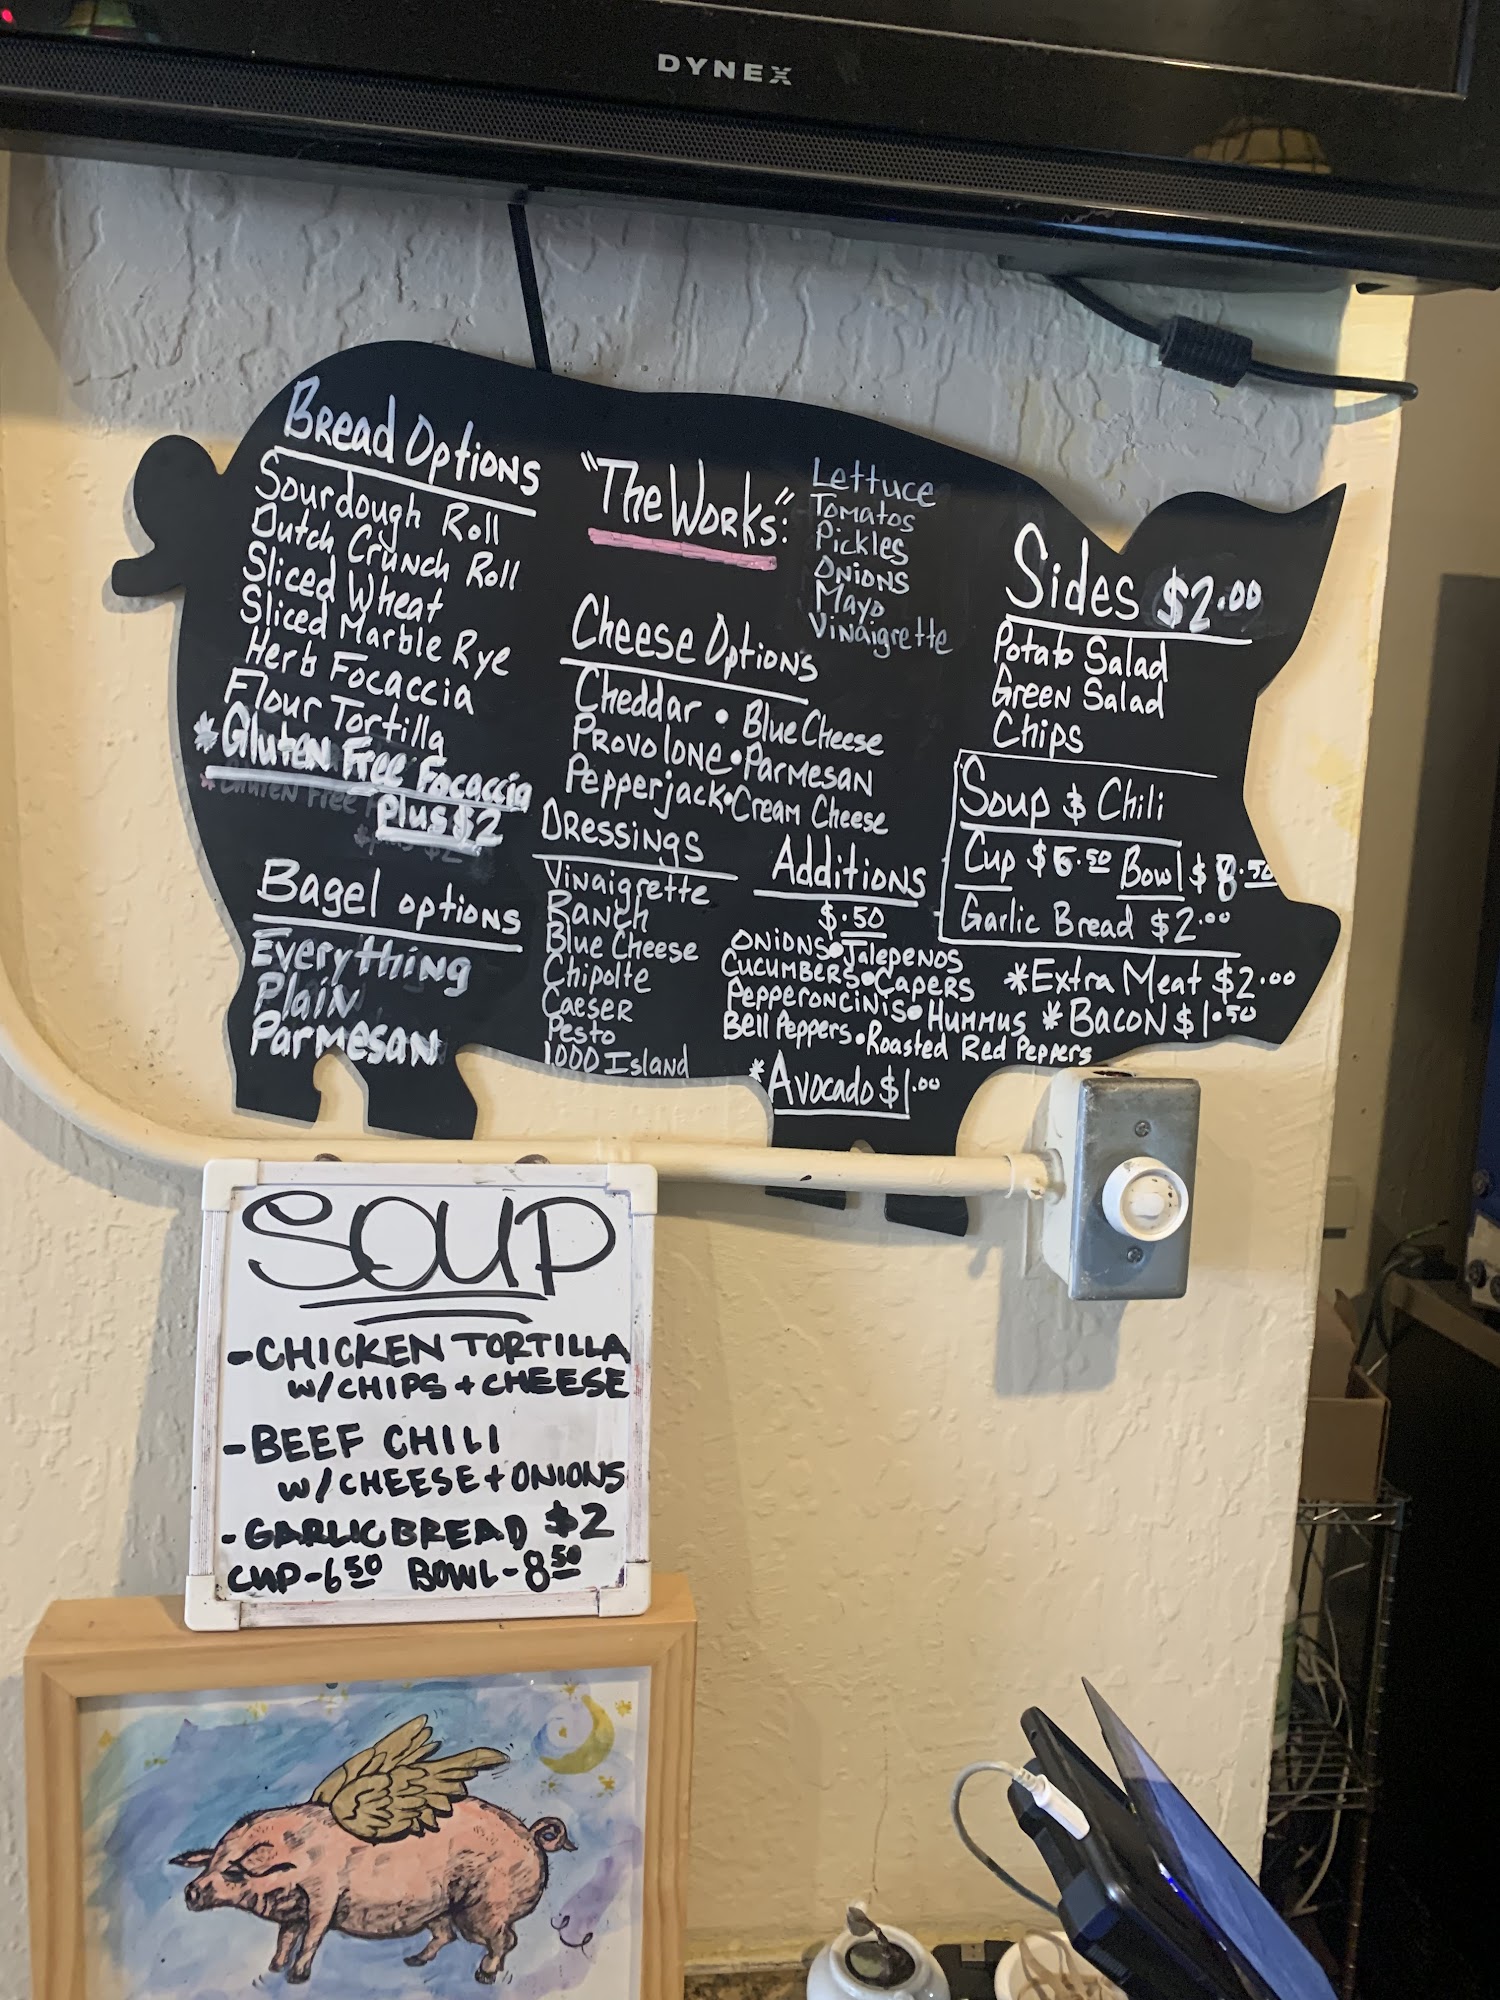 DYNEX
Bread Options
Sourdough Roll
Dutch Crunch Roll
Sliced Wheat
Sliced Marble Rye
Herb Focaccia
Flour Tortilla
*Gluten Free Focaccia
Plus $2
Bagel options
Everything
Plain
Parmesan
"The Works":
Lettuce
Tomatos
Pickles
Onions
Mayo
Vinaigrette
Cheese Options
Cheddar • Blue Cheese
Provolone • Parmesan
Pepperjack • Cream Cheese
Dressings
Vinaigrette
Ranch
Blue Cheese
Chipolte
Caeser
Pesto
1000 Island
Additions
$.50
Onions • Jalepenos
Cucumbers • Capers
Pepperoncinis • Hummus
Bell Peppers • Roasted Red Peppers
*Avocado $1.00
Sides $2.00
Potato Salad
Green Salad
Chips
Soup & Chili
Cup $6.50 Bowl $8.50
Garlic Bread $2.00
*Extra Meat $2.00
*Bacon $1.50
SOUP
-CHICKEN TORTILLA
W/CHIPS + CHEESE
-BEEF CHILI
W/CHEESE + ONIONS
-GARLIC BREAD $2
CUP-6.50 BOWL-8.50